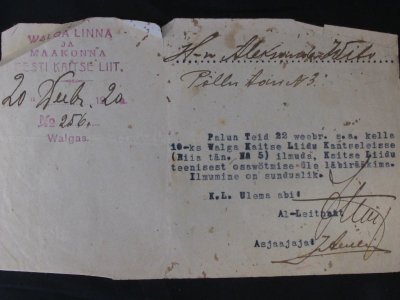 WALGA LINNA
JA
MAAKONNA
EESTI KAITSE LIIT.
20 Veebr. 20
No 256.
Walgas.
H-ra Alexander
Põllu tän N 3.
Palun Teid 22 weebr. s.a. kella
10-ks Walga Kaitse Liidu Kantseleisse
(Riia tän. No 5) ilmuda, Kaitse Liidu
teenisest osawõtmise üle läbirääkima.
Ilmumine on sunduslik.
K.L. Ulema abi:
Al-Leitnant
Asjaajaja: